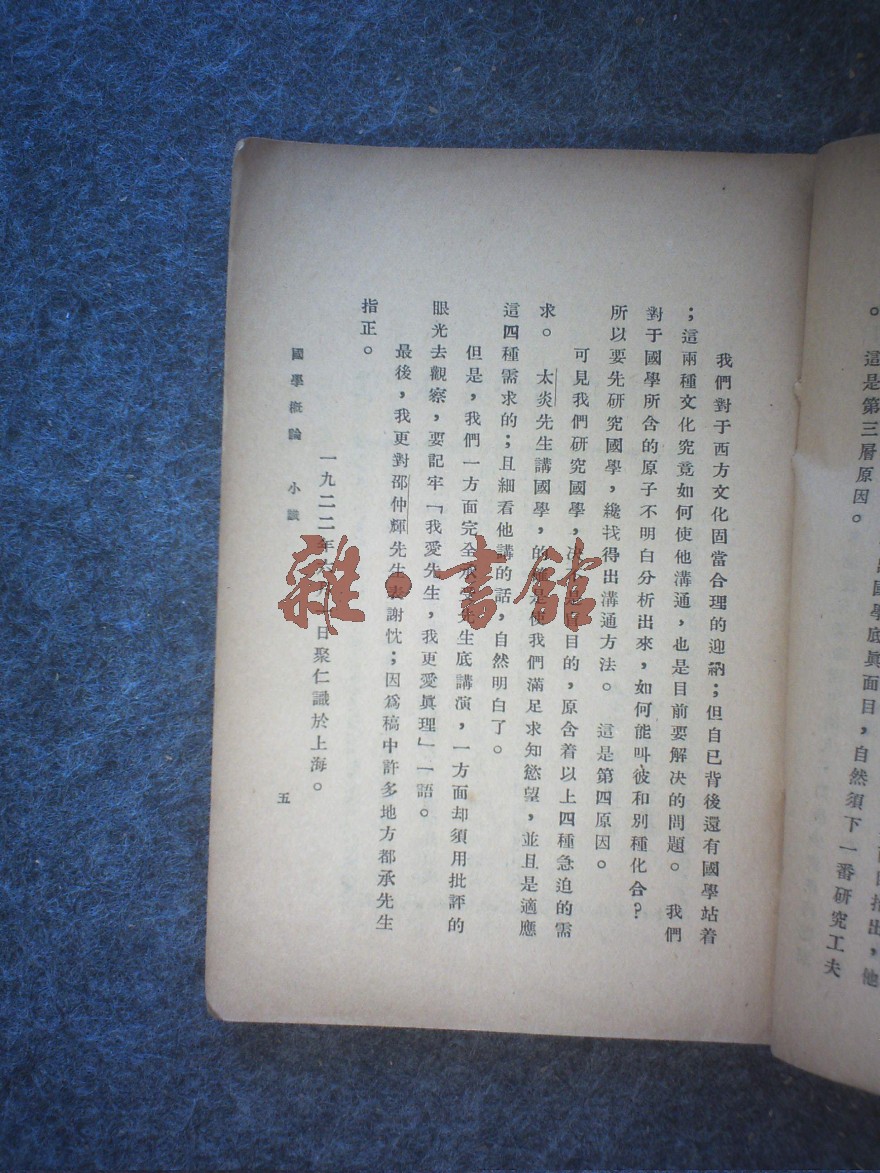 。 這是第三層原因。
國學底眞面目，自然須下一番研究工夫
我們對于西方文化固當合理的迎納；但自已背後還有國學站着
；這兩種文化究竟如何使他溝通，也是目前要解決的問題。 我們
對于國學所含的原子不明白分析出來，如何能叫彼和別種化合？
所以要先研究國學，纔找得出溝通方法。 這是第四原因。
可見我們研究國學，決目的，原含着以上四種急迫的需
求。 太炎先生講國學，的是使我們滿足求知慾望，並且是適應
這四種需求的；且細看他講的話，自然明白了。
但是，我們一方面完全承先生底講演，一方面却須用批評的
眼光去觀察，要記牢「我愛先生，我更愛眞理」一語。
最後，我更對邵仲輝先生表謝忱；因爲稿中許多地方都承先生
指正。
一九二二年日聚仁識於上海。
國學概論 小識
五
雜·書館